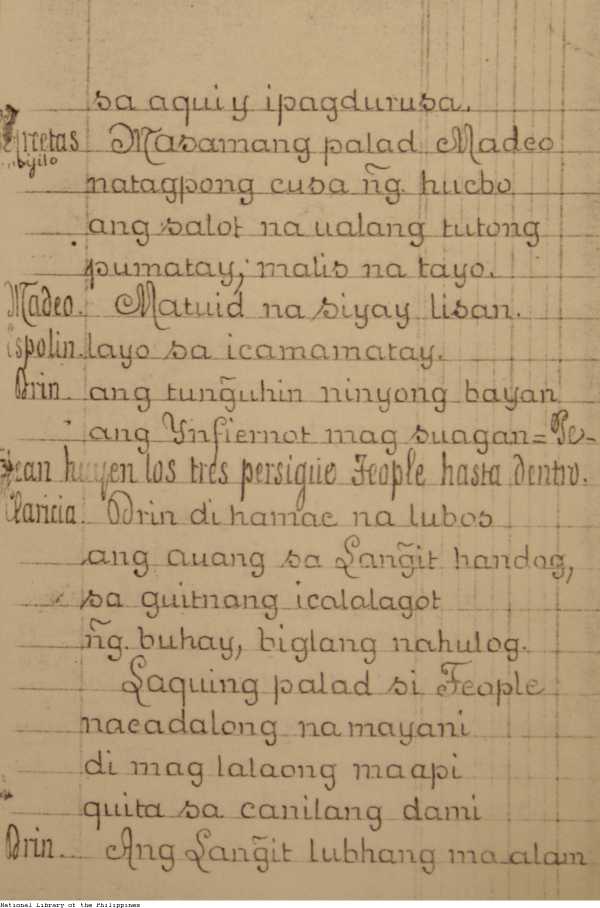 sa aqui y ipagdurusa.
Masamang palad Madeo
natagpong cusa ñg. hucbo
ang salot na ualang tutong
pumatay, malis na tayo.
Madeo. Matuid na siyay lisan.
Espolin. layo sa icamamatay.
Brin. ang tung̃uhin ninyong bayan
ang Ynfiernot mag suagan = Pe-
lean huyen los tres persigue Feople hasta dentro.
Claricia. Brin di hamac na lubos
ang auang sa Lang̃it handog,
sa guitnang icalalagot
ñg. buhay, biglang nahulog.
Laquing palad si Feople
nacadalong na mayani
di mag lalaong maapi
quita sa canilang dami
Brin. Ang Lang̃it lubhang ma-alam
National Library of the Philippines